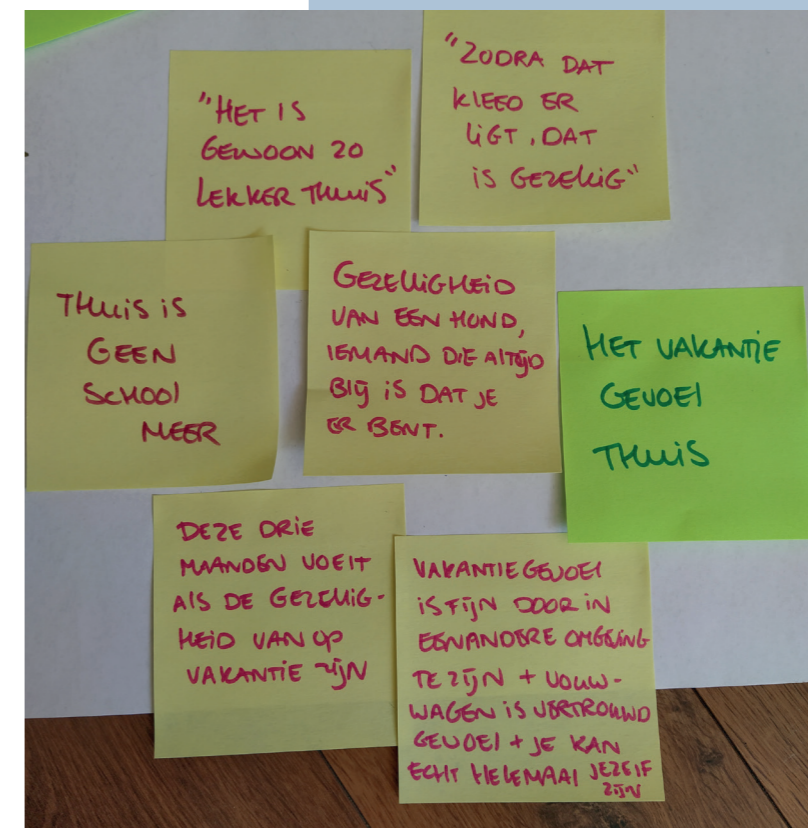 "HET IS
GEWOON ZO
LEKKER THUIS"
"ZODRA DAT
KLEED ER
LIGT, DAT
IS GEZELLIG"
THUIS IS
GEEN
SCHOOL
MEER
GEZELLIGHEID
VAN EEN HOND,
IEMAND DIE ALTIJD
BLIJ IS DAT JE
ER BENT.
HET VAKANTIE
GEVOEL
THUIS
DEZE DRIE
MAANDEN VOELT
ALS DE GEZELLIG-
HEID VAN OP
VAKANTIE ZIJN
VAKANTIEGEVOEL
IS FIJN DOOR IN
EEN ANDERE OMGEVING
TE ZIJN + VOUW-
WAGEN IS VERTROUWD
GEVOEL + JE KAN
ECHT HELEMAAL JEZELF
ZIJN